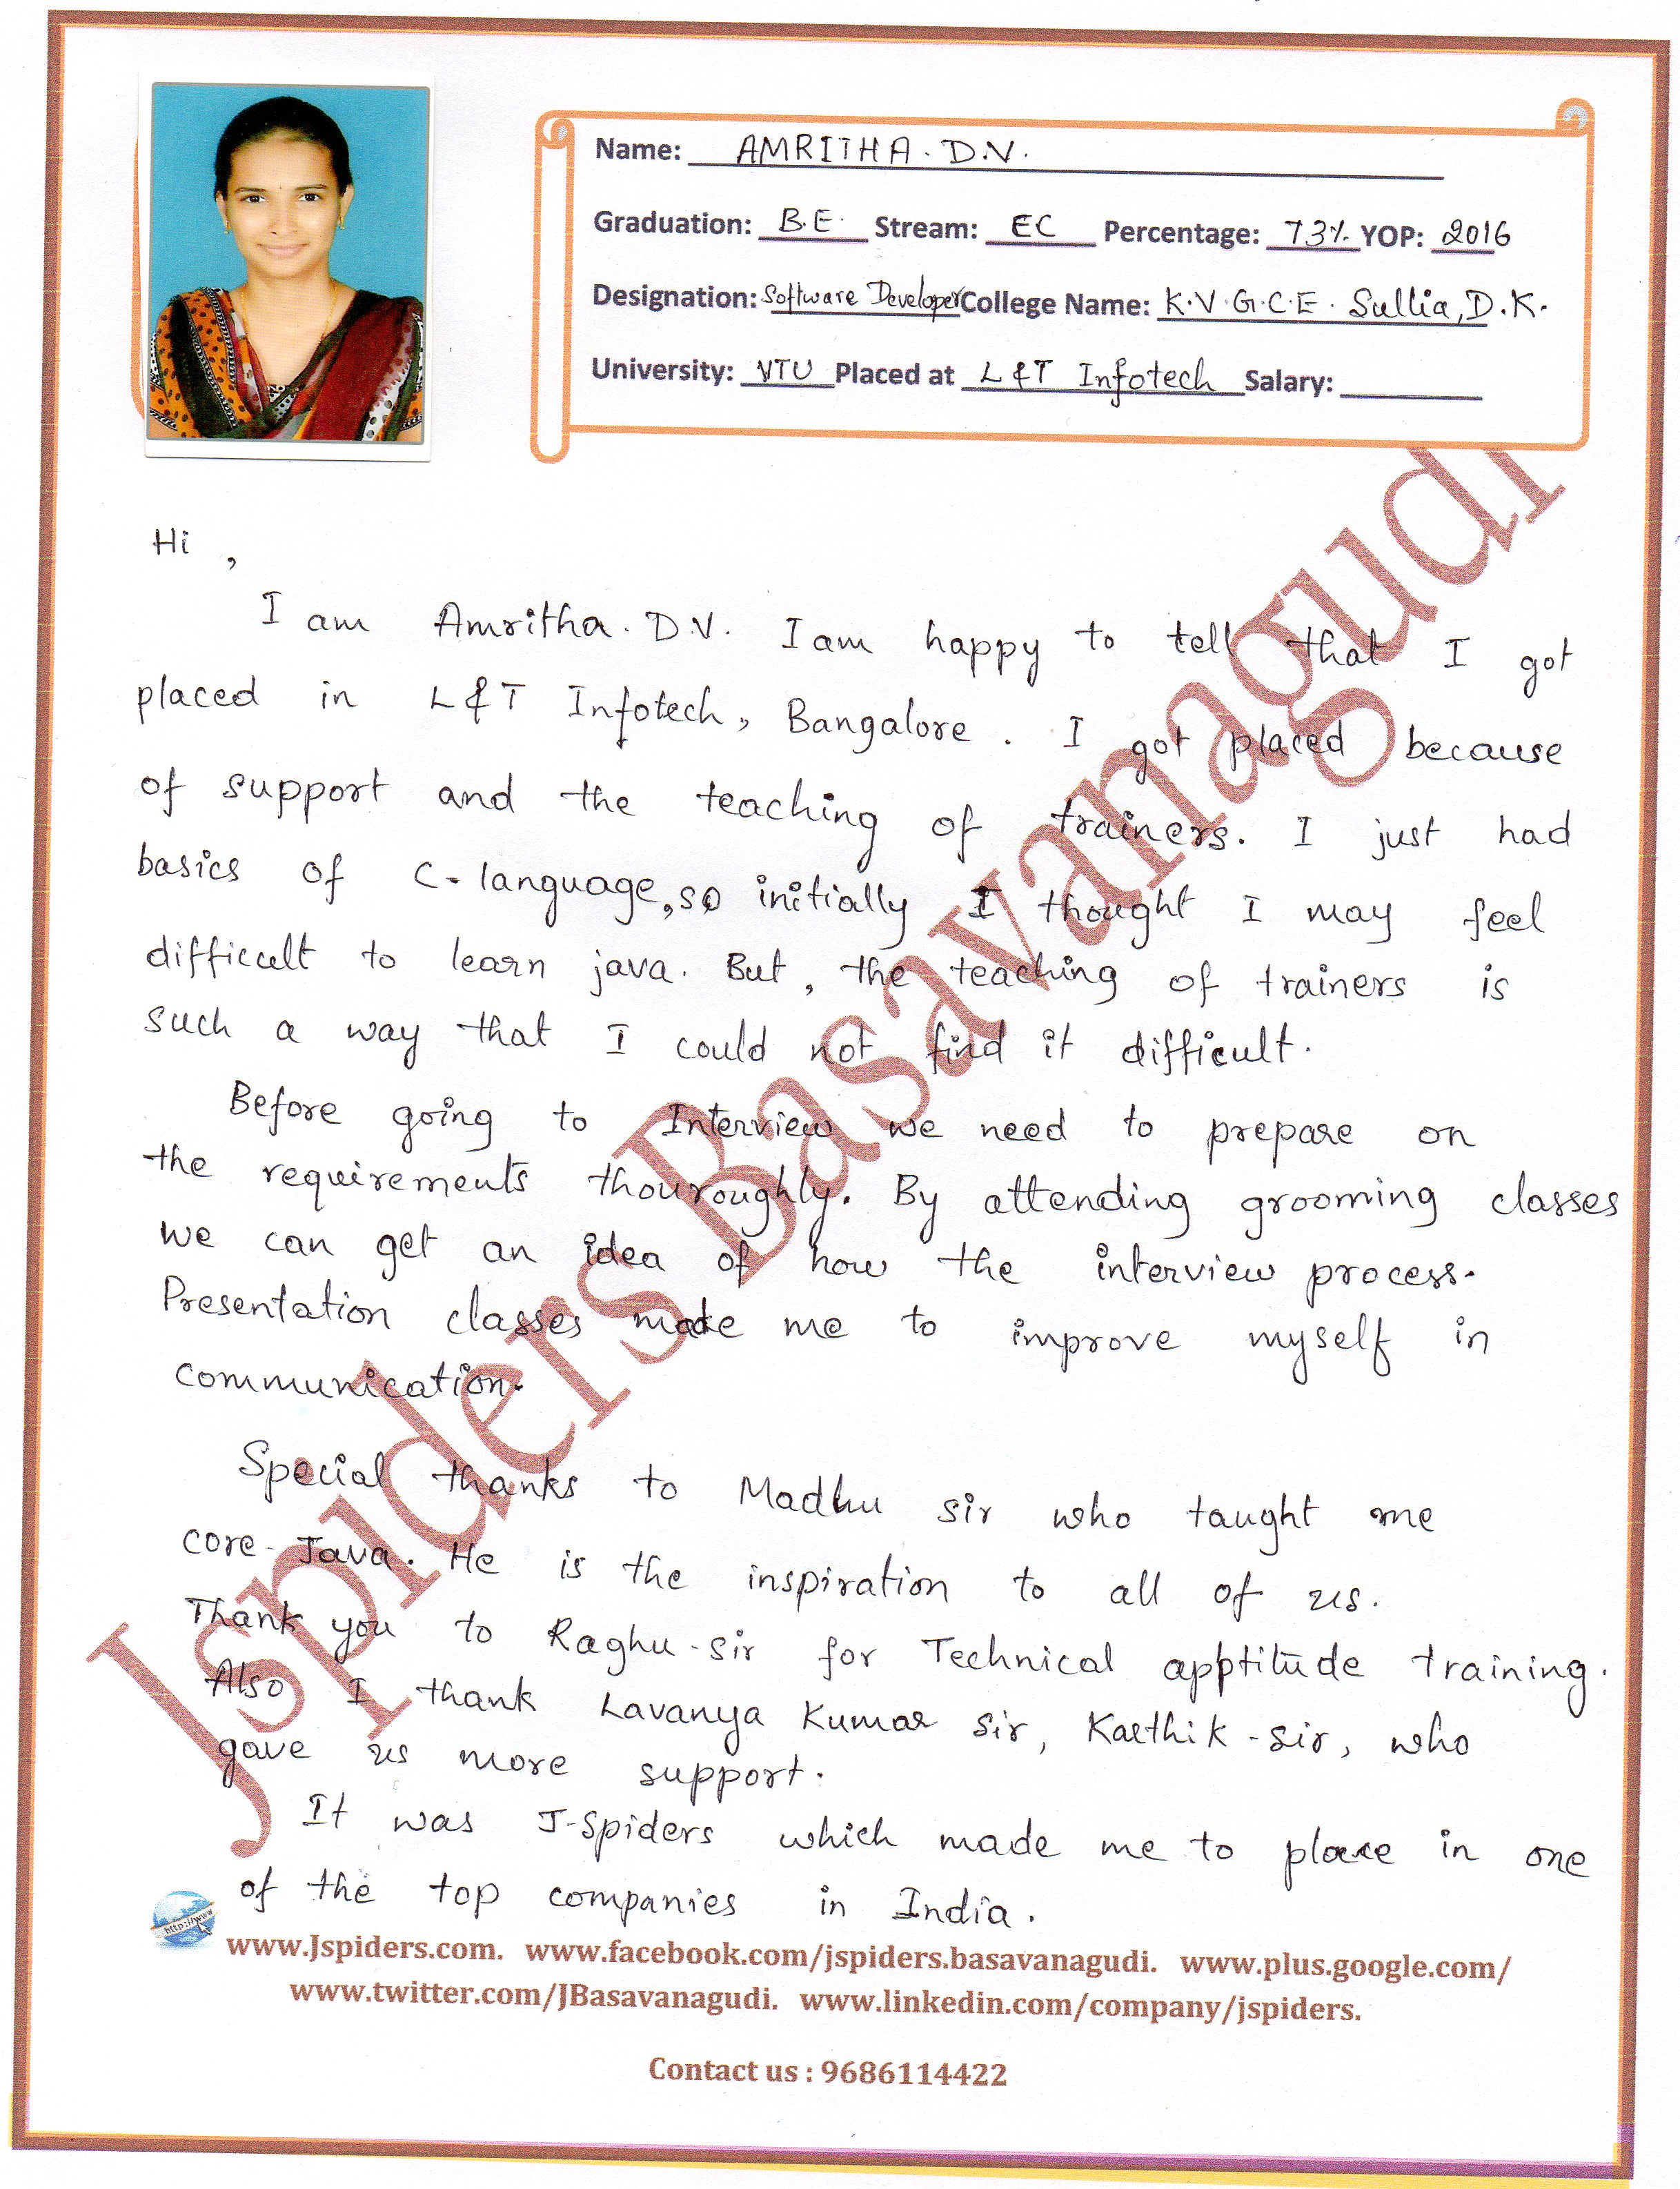 Name: AMRITHA. D.V.
Graduation: B.E. Stream: EC Percentage: 73% YOP: 2016
Designation: Software Developer College Name: K.V.G.C.E. Sullia, D.K.
University: VTU Placed at L&T Infotech Salary:
Hi ,
I am Amritha. D.V. I am happy to tell that I got
placed in L&T Infotech, Bangalore. I got placed because
of support and the teaching of trainers. I just had
basics of C-language, so initially I thought I may feel
difficult to learn java. But, the teaching of trainers is
such a way that I could not find it difficult.
Before going to Interview we need to prepare on
the requirements thouroughly. By attending grooming classes
we can get an idea of how the interview process.
Presentation classes made me to improve myself in
communication.
Special thanks to Madhu sir who taught me
core-Java. He is the inspiration to all of us.
Thank you to Raghu-sir for Technical apptitude training.
Also I thank Lavanya Kumar sir, Karthik-sir, who
gave us more support.
It was J-Spiders which made me to place in one
of the top companies in India.
Jspiders Basavanagudi
http://www
www.Jspiders.com. www.facebook.com/jspiders.basavanagudi. www.plus.google.com/
www.twitter.com/JBasavanagudi. www.linkedin.com/company/jspiders.
Contact us : 9686114422